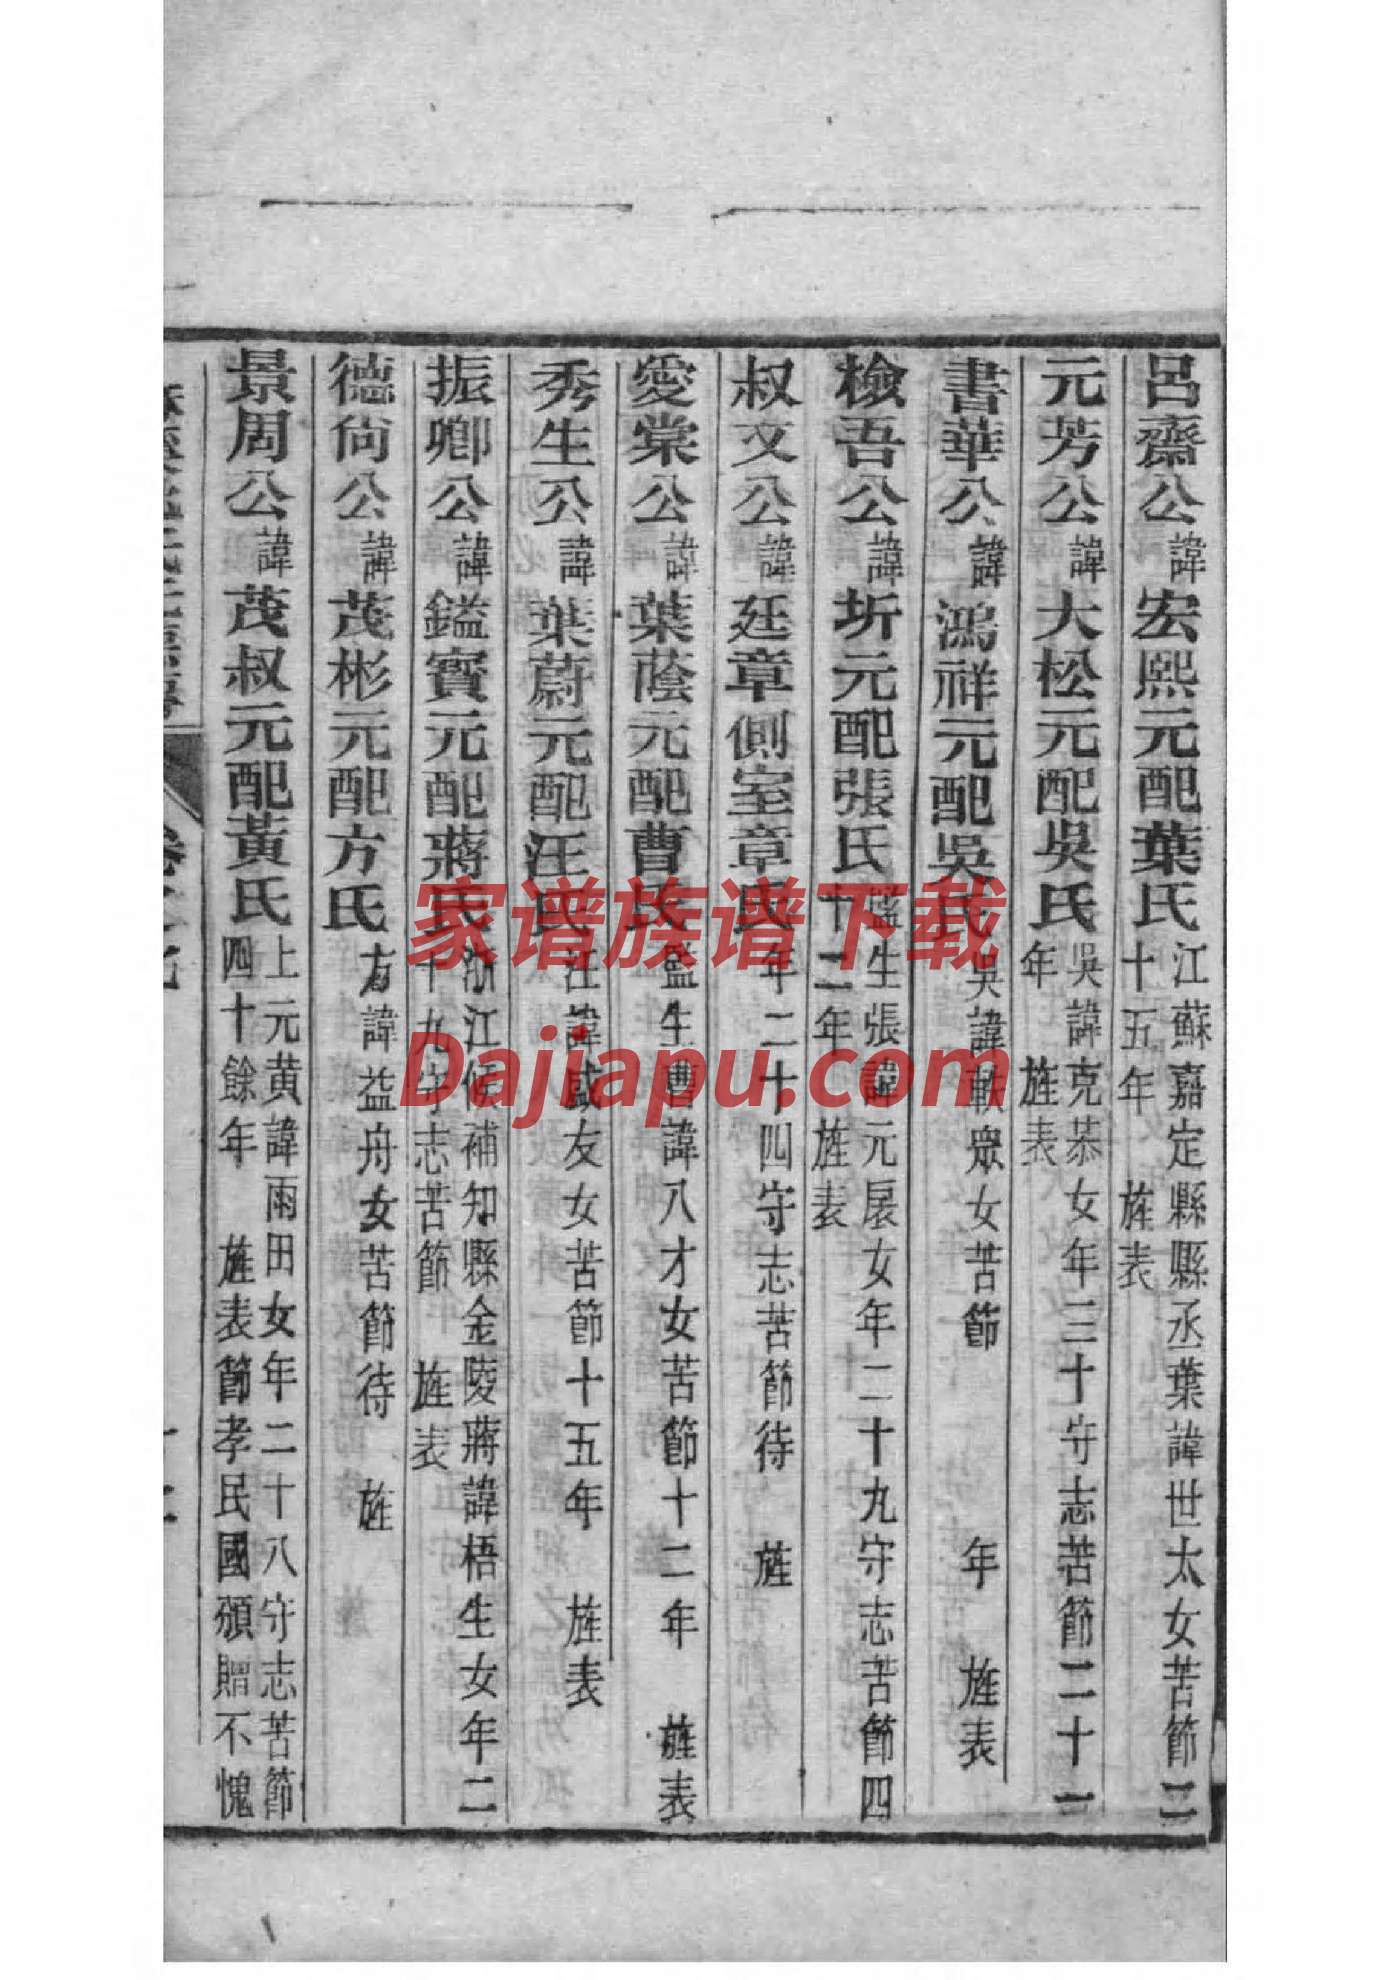 呂齋公諱宏熙元配葉氏江蘇嘉定縣縣丞葉諱世太女苦節二十五年 旌表
元芳公諱大松元配吳氏吳諱克恭女年三十守志苦節二十一年 旌表
書華公諱鴻祥元配吳氏吳諱軼眾女苦節 年 旌表
檢吾公諱圻元配張氏生張諱元扆女年二十九守志苦節四十二年 旌表
叔文公諱廷章側室章氏年二十四守志苦節待 旌
愛棠公諱葉蔭元配曹氏監生曹諱八才女苦節十二年 旌表
秀生公諱葉蔚元配汪氏汪諱咸友女苦節十五年 旌表
振卿公諱鎰寶元配蔣氏浙江候補知縣金陵蔣諱梧生女年二十九守志苦節 旌表
德尙公諱茂彬元配方氏方諱益舟女苦節待 旌
景周公諱茂叔元配黃氏上元黃諱雨田女年二十八守志苦節四十餘年 旌表節孝民國頒贈不愧
家谱族谱下载
Dajiapu.com